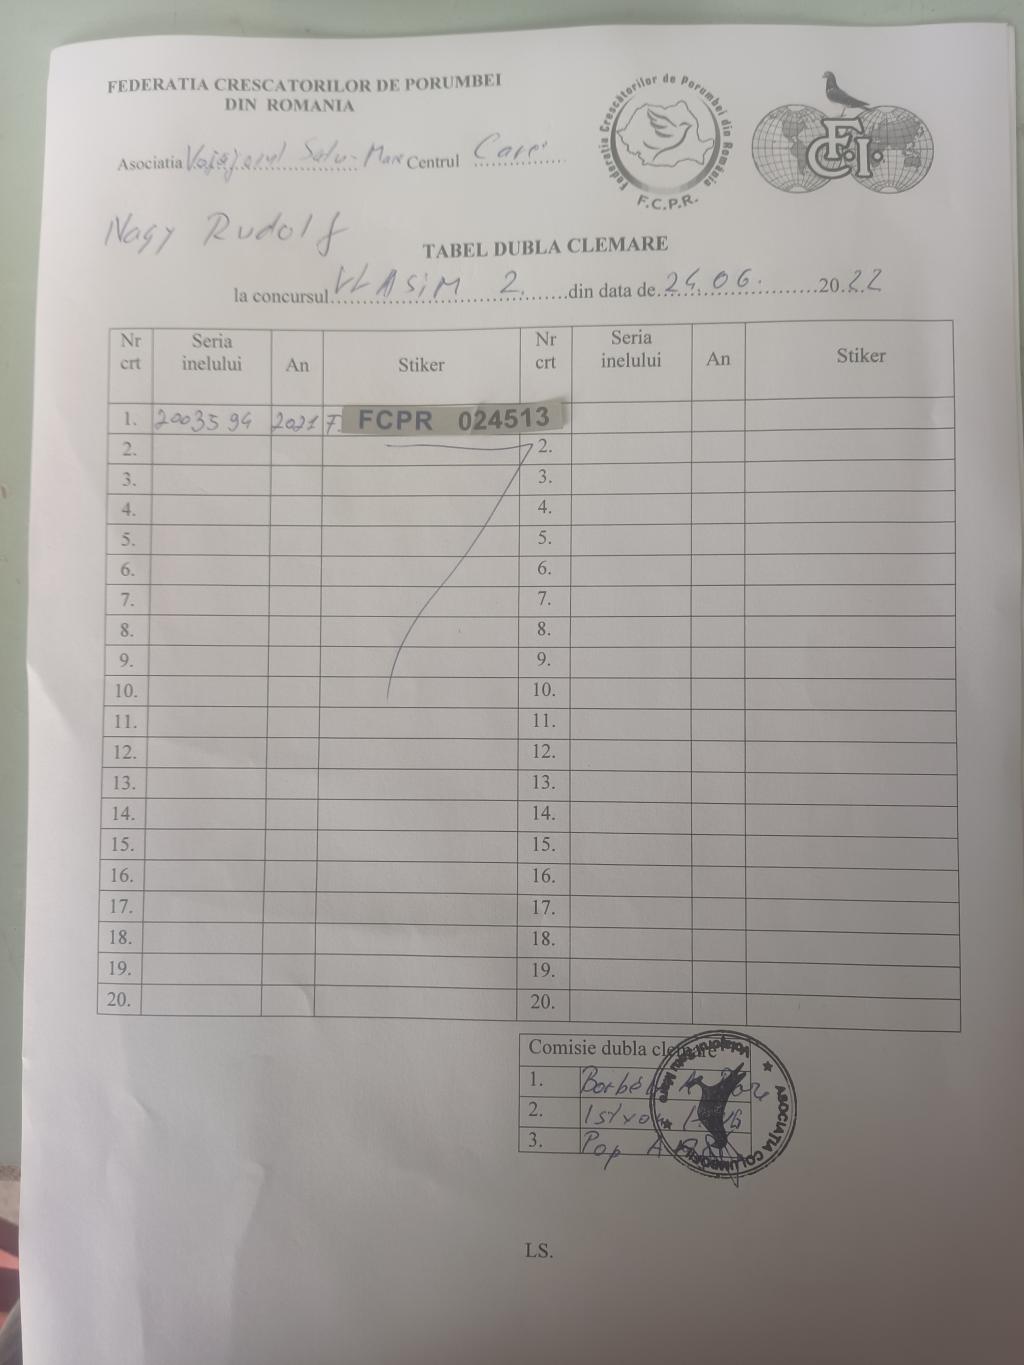 FEDERATIA CRESCATORILOR DE PORUMBEI
DIN ROMANIA
Federatia Crescătorilor de Porumbei din România
F.C.P.R.
F.C.I.
Asociatia Voiajorul Satu-Mare Centrul Carei
Nagy Rudolf
TABEL DUBLA CLEMARE
la concursul VLASIM 2. din data de 24.06. 2022
Nr crt Seria inelului An Stiker Nr crt Seria inelului An Stiker
1. 2003594 2021 F. FCPR 024513
2. 2.
3. 3.
4. 4.
5. 5.
6. 6.
7. 7.
8. 8.
9. 9.
10. 10.
11. 11.
12. 12.
13. 13.
14. 14.
15. 15.
16. 16.
17. 17.
18. 18.
19. 19.
20. 20.
Comisie dubla clemare
1.
2.
3. Pop
ASOCIATIA COLUMBOFILA
Voiajorul Satu Mare
LS.